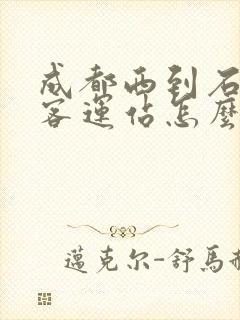 成都西到石
客運站怎麼
邁克尔-舒馬赫